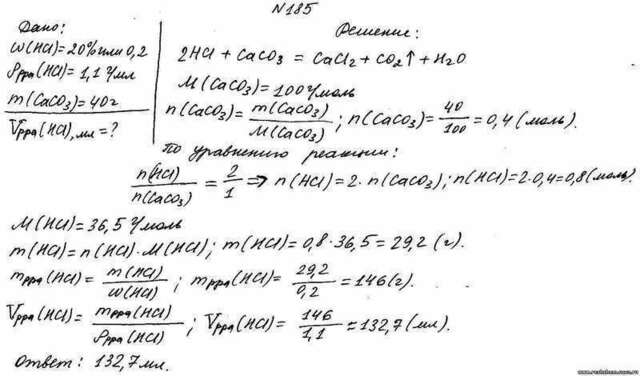 №185
Дано:
ω(HCl)=20% или 0,2
ρр-ра(HCl)=1,1 г/мл
m(CaCO3)=40г
Vр-ра(HCl), мл = ?
Решение:
2HCl + CaCO3 = CaCl2 + CO2↑ + H2O
M(CaCO3)=100 г/моль
n(CaCO3)= m(CaCO3)/M(CaCO3); n(CaCO3)= 40/100 =0,4(моль).
По уравнению реакции:
n(HCl)/n(CaCO3) = 2/1 => n(HCl)=2·n(CaCO3); n(HCl)=2·0,4=0,8(моль).
M(HCl)=36,5 г/моль
m(HCl)=n(HCl)·M(HCl); m(HCl)=0,8·36,5=29,2(г).
mр-ра(HCl)= m(HCl)/ω(HCl); mр-ра(HCl)= 29,2/0,2 =146(г).
Vр-ра(HCl)= mр-ра(HCl)/ρр-ра(HCl); Vр-ра(HCl)= 146/1,1 =132,7(мл).
Ответ: 132,7мл.